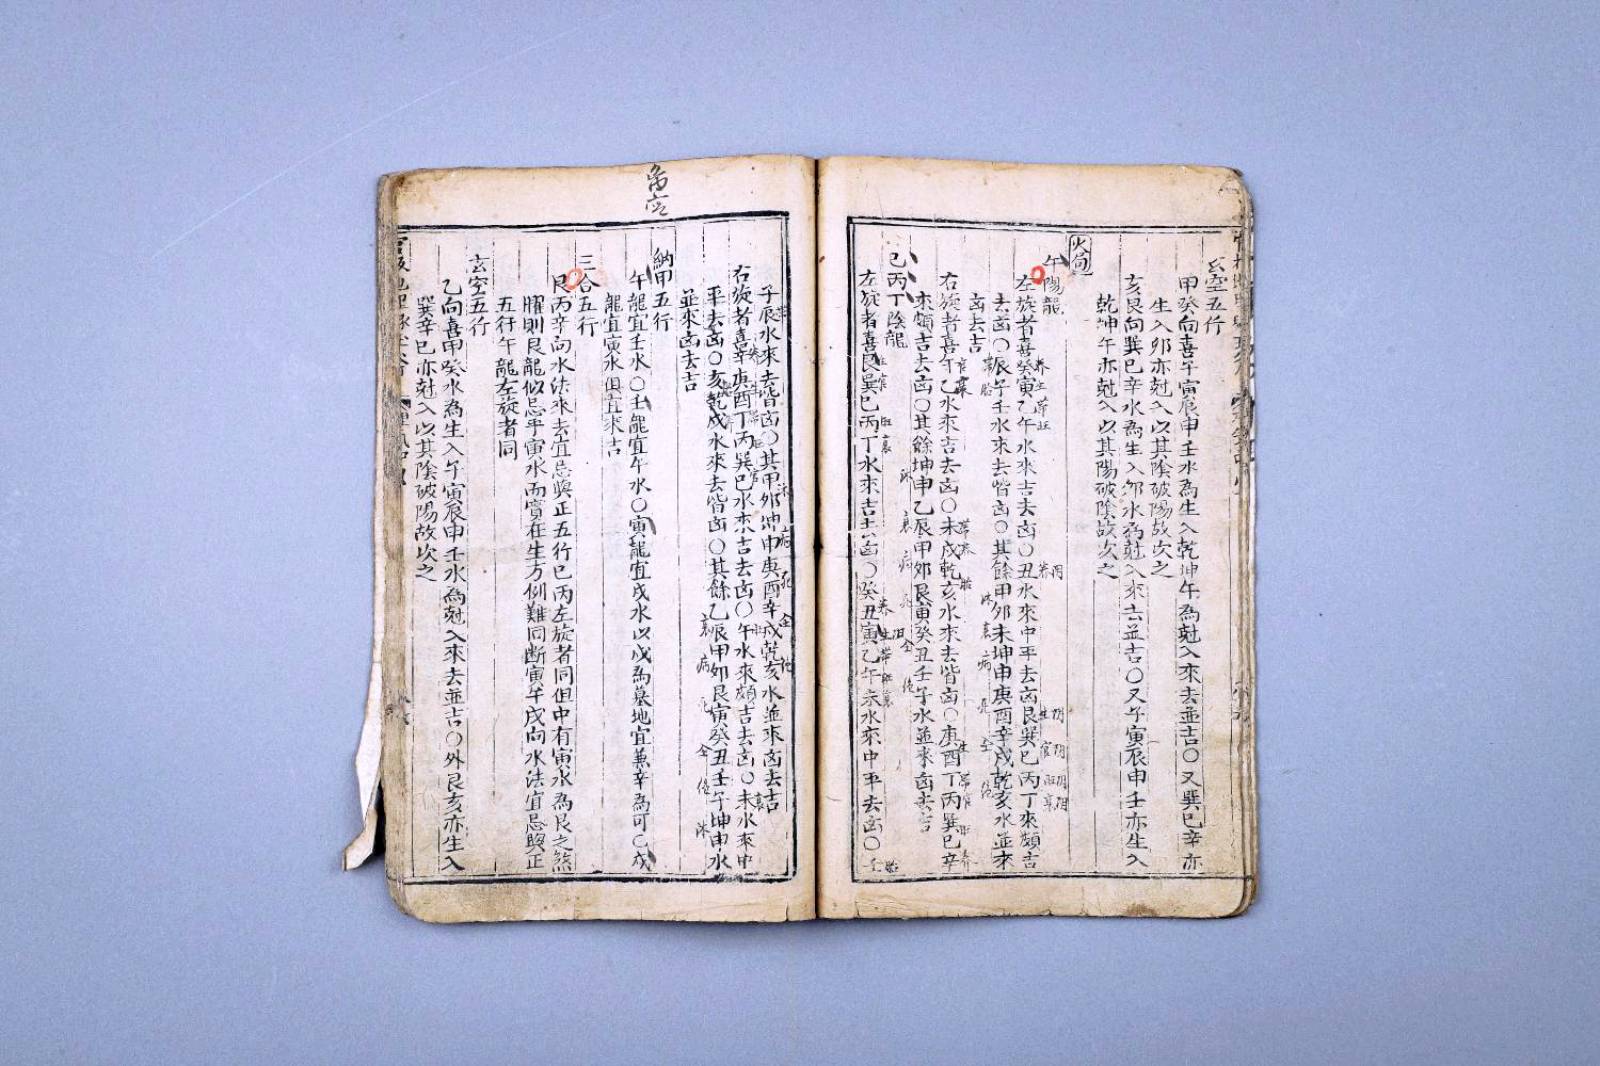 玄空五行
甲癸向喜午寅辰申壬水為生入乾坤午為尅入來去並吉〇又巽巳辛亦
生入夘亦尅入以其陰破陽故次之
亥艮向巽巳辛水為生入夘水為尅入來去並吉〇又午寅辰申壬亦生入
乾坤午亦尅入以其陽破陰故次之
火局
午陽龍
左旋者喜癸寅乙午水來吉去凶〇丑水來中平去凶艮巽巳丙丁來頗吉
去凶〇辰子壬水來去皆凶〇其餘甲夘未坤申庚酉辛戌乾亥水並來
凶去吉
右旋者喜午乙水來吉去凶〇未戌乾亥水來去皆凶〇庚酉丁丙巽巳辛
來頗吉去凶〇其餘坤申乙辰甲夘艮寅癸丑壬子水並來凶去吉
巳丙丁陰龍
左旋者喜艮巽巳丙丁水來吉去凶〇癸丑寅乙午未水來中平去凶〇壬
子辰水來去皆凶〇其甲夘坤申庚酉辛戌乾亥水並來凶去吉
右旋者喜辛庚酉丁丙巽巳水來吉去凶〇午水來頗吉去凶〇未水來中
平去凶〇亥乾戌水來去皆凶〇其餘乙辰甲夘艮寅癸丑壬子坤申水
並來凶去吉
納甲五行
午龍宜壬水〇壬龍宜午水〇寅龍宜戌水以戌為墓地宜兼辛為可〇戌
龍宜寅水但宜來吉
三合五行
艮丙辛向水法來去宜忌與正五行巳丙左旋者同但中有寅水為艮之煞
曜則艮龍似忌乎寅水而實在生方例難同断寅午戌向水法宜忌與正
五行午龍左旋者同
玄空五行
乙向喜甲癸水為生入午寅辰申壬水為尅入來去並吉〇外艮亥亦生入
巽辛巳亦尅入以其陰破陽故次之